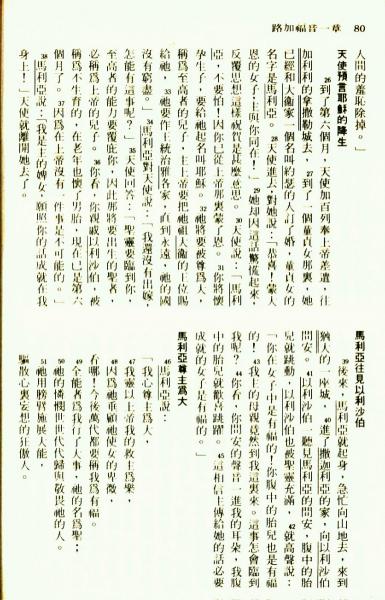 路加福音一章 80
人間的羞恥除掉。」
天使預言耶穌的降生
26到了第六個月，天使加百列奉上帝差遣，往
加利利的拿撒勒城去，27到了一個童貞女那裏，她
已經和大衞家一個名叫約瑟的人訂了婚，童貞女的
名字是馬利亞。28天使進去，對她說：「恭喜！蒙大
恩的女子，主與你同在！」29她却因這話驚慌起來，
反覆思想這樣祝賀是甚麼意思。30天使說：「馬利
亞，不要怕！因你已從上帝那裏蒙了恩。31你將懷
孕生子，要給祂起名叫耶穌。32祂將要被尊爲大，
稱爲至高者的兒子，主上帝要把祂祖大衞的王位賜
給祂，33祂要作王統治雅各家，直到永遠，祂的國
沒有窮盡。」34馬利亞對天使說：「我還沒有出嫁，
怎能有這事呢？」35天使回答：「聖靈要臨到你，
至高者的能力要覆庇你，因此那將要出生的聖者
必稱爲上帝的兒子。36你看，你親戚以利沙伯，被
稱爲不生育的，在老年也懷了男胎，現在已是第六
個月了。37因爲在上帝沒有一件事是不可能的。」
38馬利亞說：「我是主的婢女，願照你的話成就在我
身上！」天使就離開她去了。
馬利亞往見以利沙伯
39後來，馬利亞就起身，急忙向山地去，來到
猶大的一座城，40進了撒迦利亞的家，向以利沙伯
問安。41以利沙伯一聽見馬利亞的問安，腹中的胎
兒就跳動，以利沙伯也被聖靈充滿，42就高聲說：
「你在女子中是有福的！你腹中的胎兒也是有福
的！43我主的母親竟然到我這裏來。這事怎會臨到
我呢？44你看，你問安的聲音一進我的耳朶，我腹
中的胎兒就歡喜跳躍。45這相信主傳給她的話必要
成就的女子是有福的。」
馬利亞尊主爲大
46馬利亞說：
「我心尊主爲大，
47我靈以上帝我的救主爲樂，
48因爲祂垂顧祂使女的卑微，
看哪！今後萬代都要稱我爲有福。
49全能者爲我行了大事，祂的名爲聖；
50祂的憐憫世世代代歸與敬畏祂的人。
51祂用膀臂施展大能，
驅散心裏妄想的狂傲人。